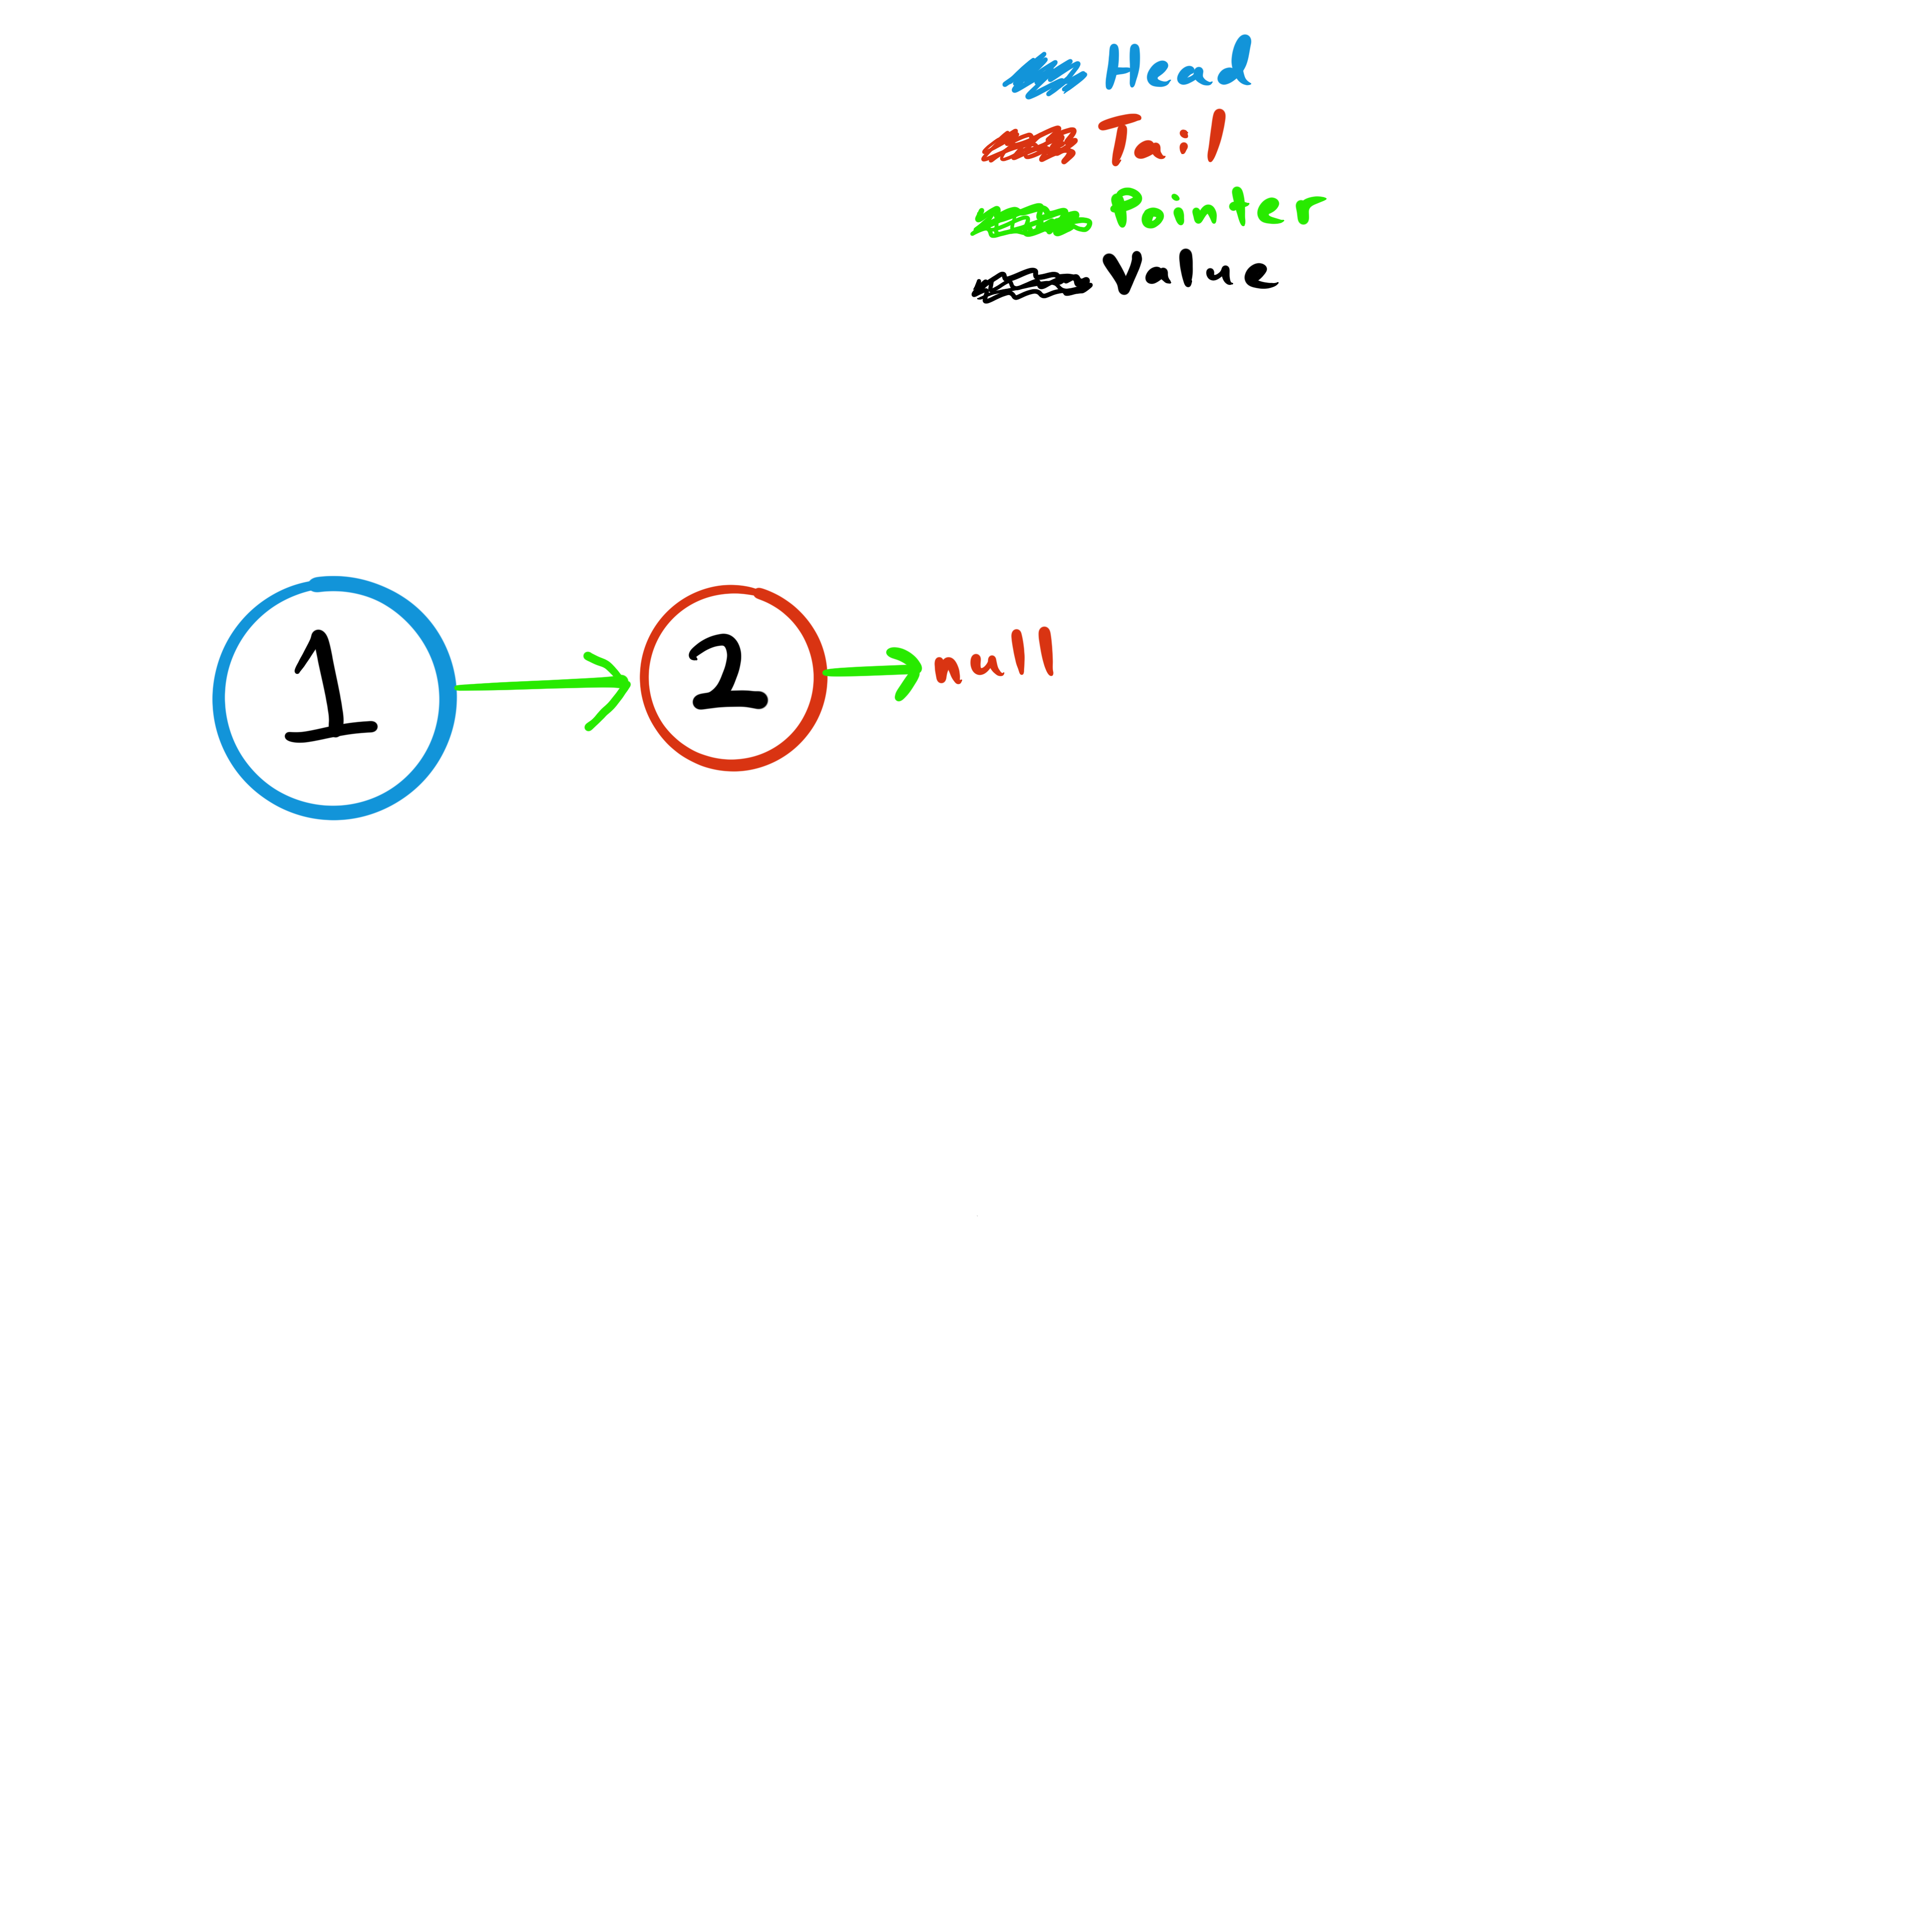 Head
Tail
Pointer
Value
1 2 null